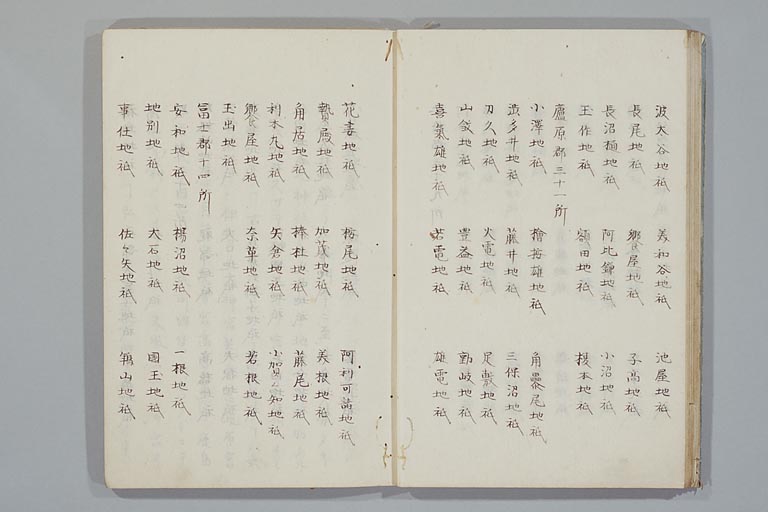 波大谷地祇 美和谷地祇 池屋地祇
長尾地祇 饗屋地祇 子高地祇
長沼樋地祇 阿比鎌地祇 小沼地祇
玉作地祇 額田地祇 榎本地祇
廬原郡三十一所
小澤地祇 檜若雄地祇 角尾地祇
渋多井地祇 藤井地祇 三保沼地祇
刃久地祇 火電地祇 足敷地祇
山敛地祇 豊益地祇 動岐地祇
喜氣雄地祇 若電地祇 雄電地祇
花妻地祇 栃尾地祇 阿利可詰地祇
贄殿地祇 加茂地祇 美根地祇
角居地祇 椿杜地祇 藤尾地祇
利本九地祇 矢倉地祇 小賀知地祇
饗屋地祇 奈草地祇 若根地祇
玉出地祇
冨士郡十四所
安和地祇 楊沼地祇 一根地祇
地別地祇 大石地祇 國玉地祇
事任地祇 佐々矢地祇 鶴山地祇